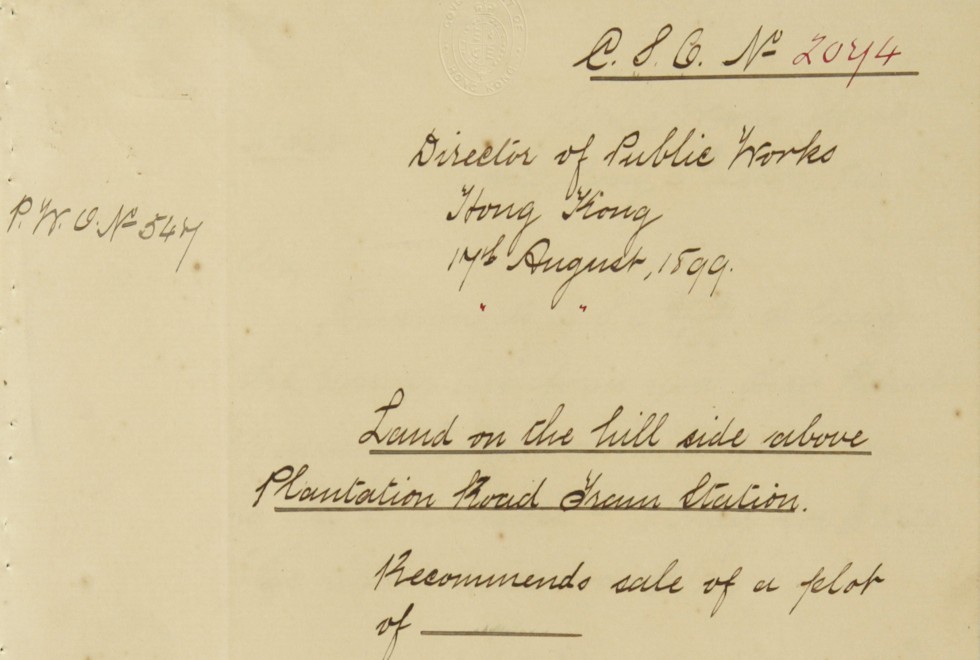 C. S. O. Nº 2074
Director of Public Works
P. W. O. Nº 547
Hong Kong
17th August, 1899.
" "
Land on the hill side above
Plantation Road Tram Station.
Recommends sale of a plot
of